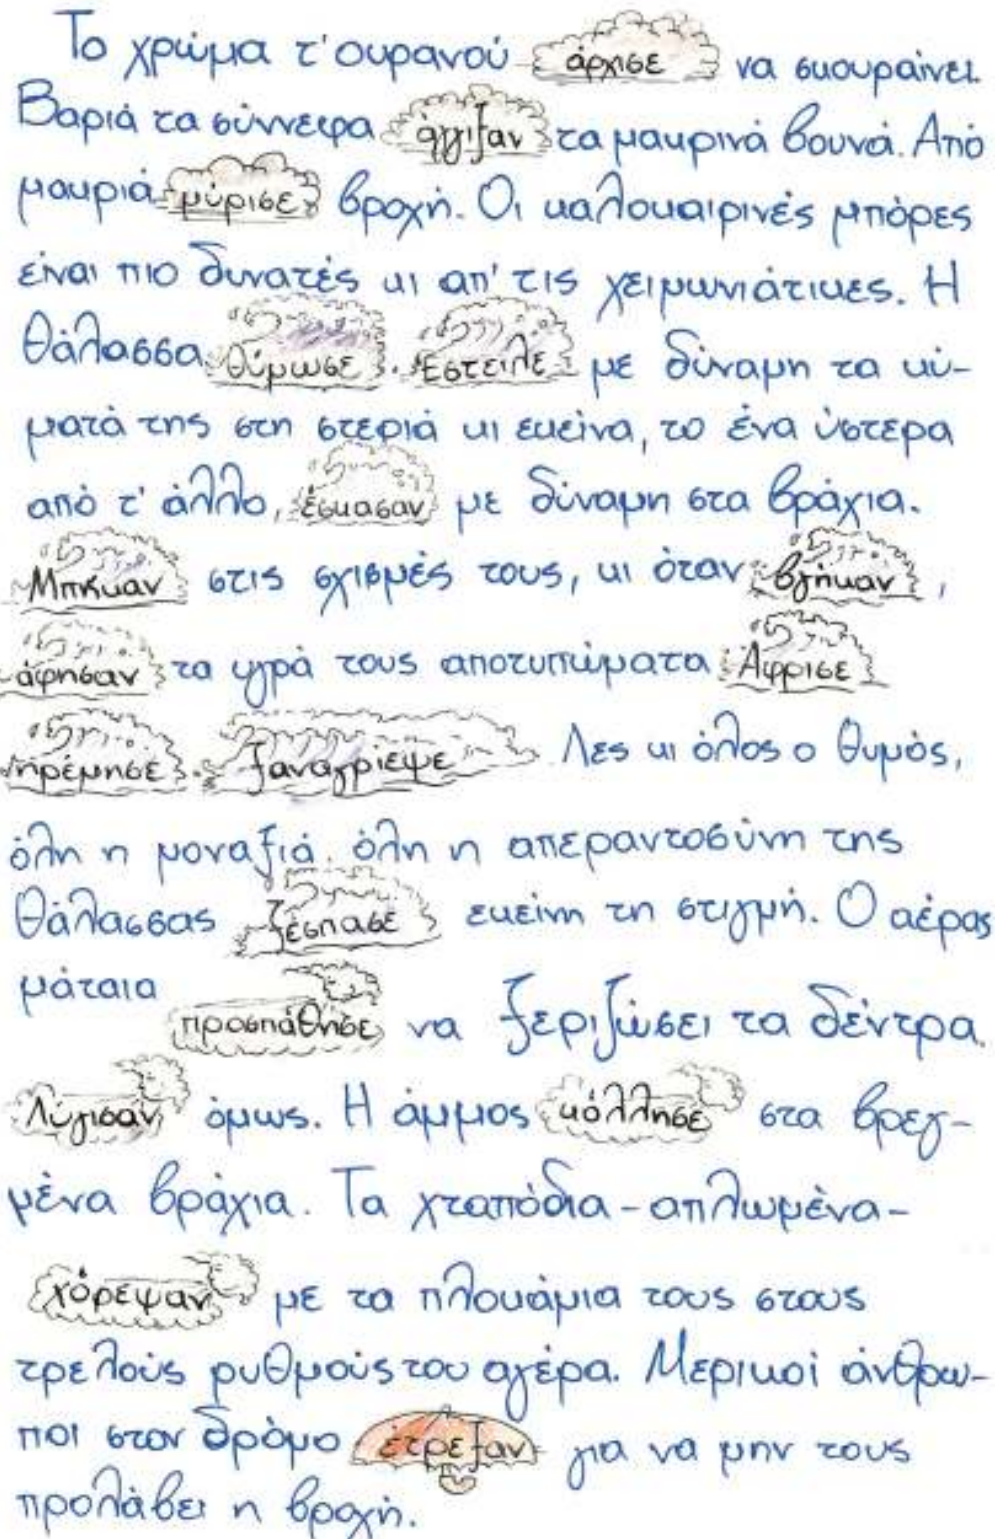 Το χρώμα τ' ουρανού άρχισε να σκουραίνει.
Βαριά τα σύννεφα άγγιξαν τα μακρινά βουνά. Από
μακριά μύρισε βροχή. Οι καλοκαιρινές μπόρες
είναι πιο δυνατές κι απ' τις χειμωνιάτικες. Η
θάλασσα θύμωσε. Έστειλε με δύναμη τα κύ-
ματά της στη στεριά κι εκείνα, το ένα ύστερα
από τ' άλλο, έσκασαν με δύναμη στα βράχια.
Μπήκαν στις σχισμές τους, κι όταν βγήκαν,
άφησαν τα υγρά τους αποτυπώματα Άφρισε
ηρέμησε. ξαναγρίεψε Λες κι όλος ο θυμός,
όλη η μοναξιά, όλη η απεραντοσύνη της
θάλασσας ξέσπασε εκείνη τη στιγμή. Ο αέρας
μάταια προσπάθησε να ξεριζώσει τα δέντρα.
Λύγισαν όμως. Η άμμος κόλλησε στα βρεγ-
μένα βράχια. Τα χταπόδια - απλωμένα -
χόρεψαν με τα πλοκάμια τους στους
τρελούς ρυθμούς του αγέρα. Μερικοί άνθρω-
ποι στον δρόμο έτρεξαν για να μην τους
προλάβει η βροχή.